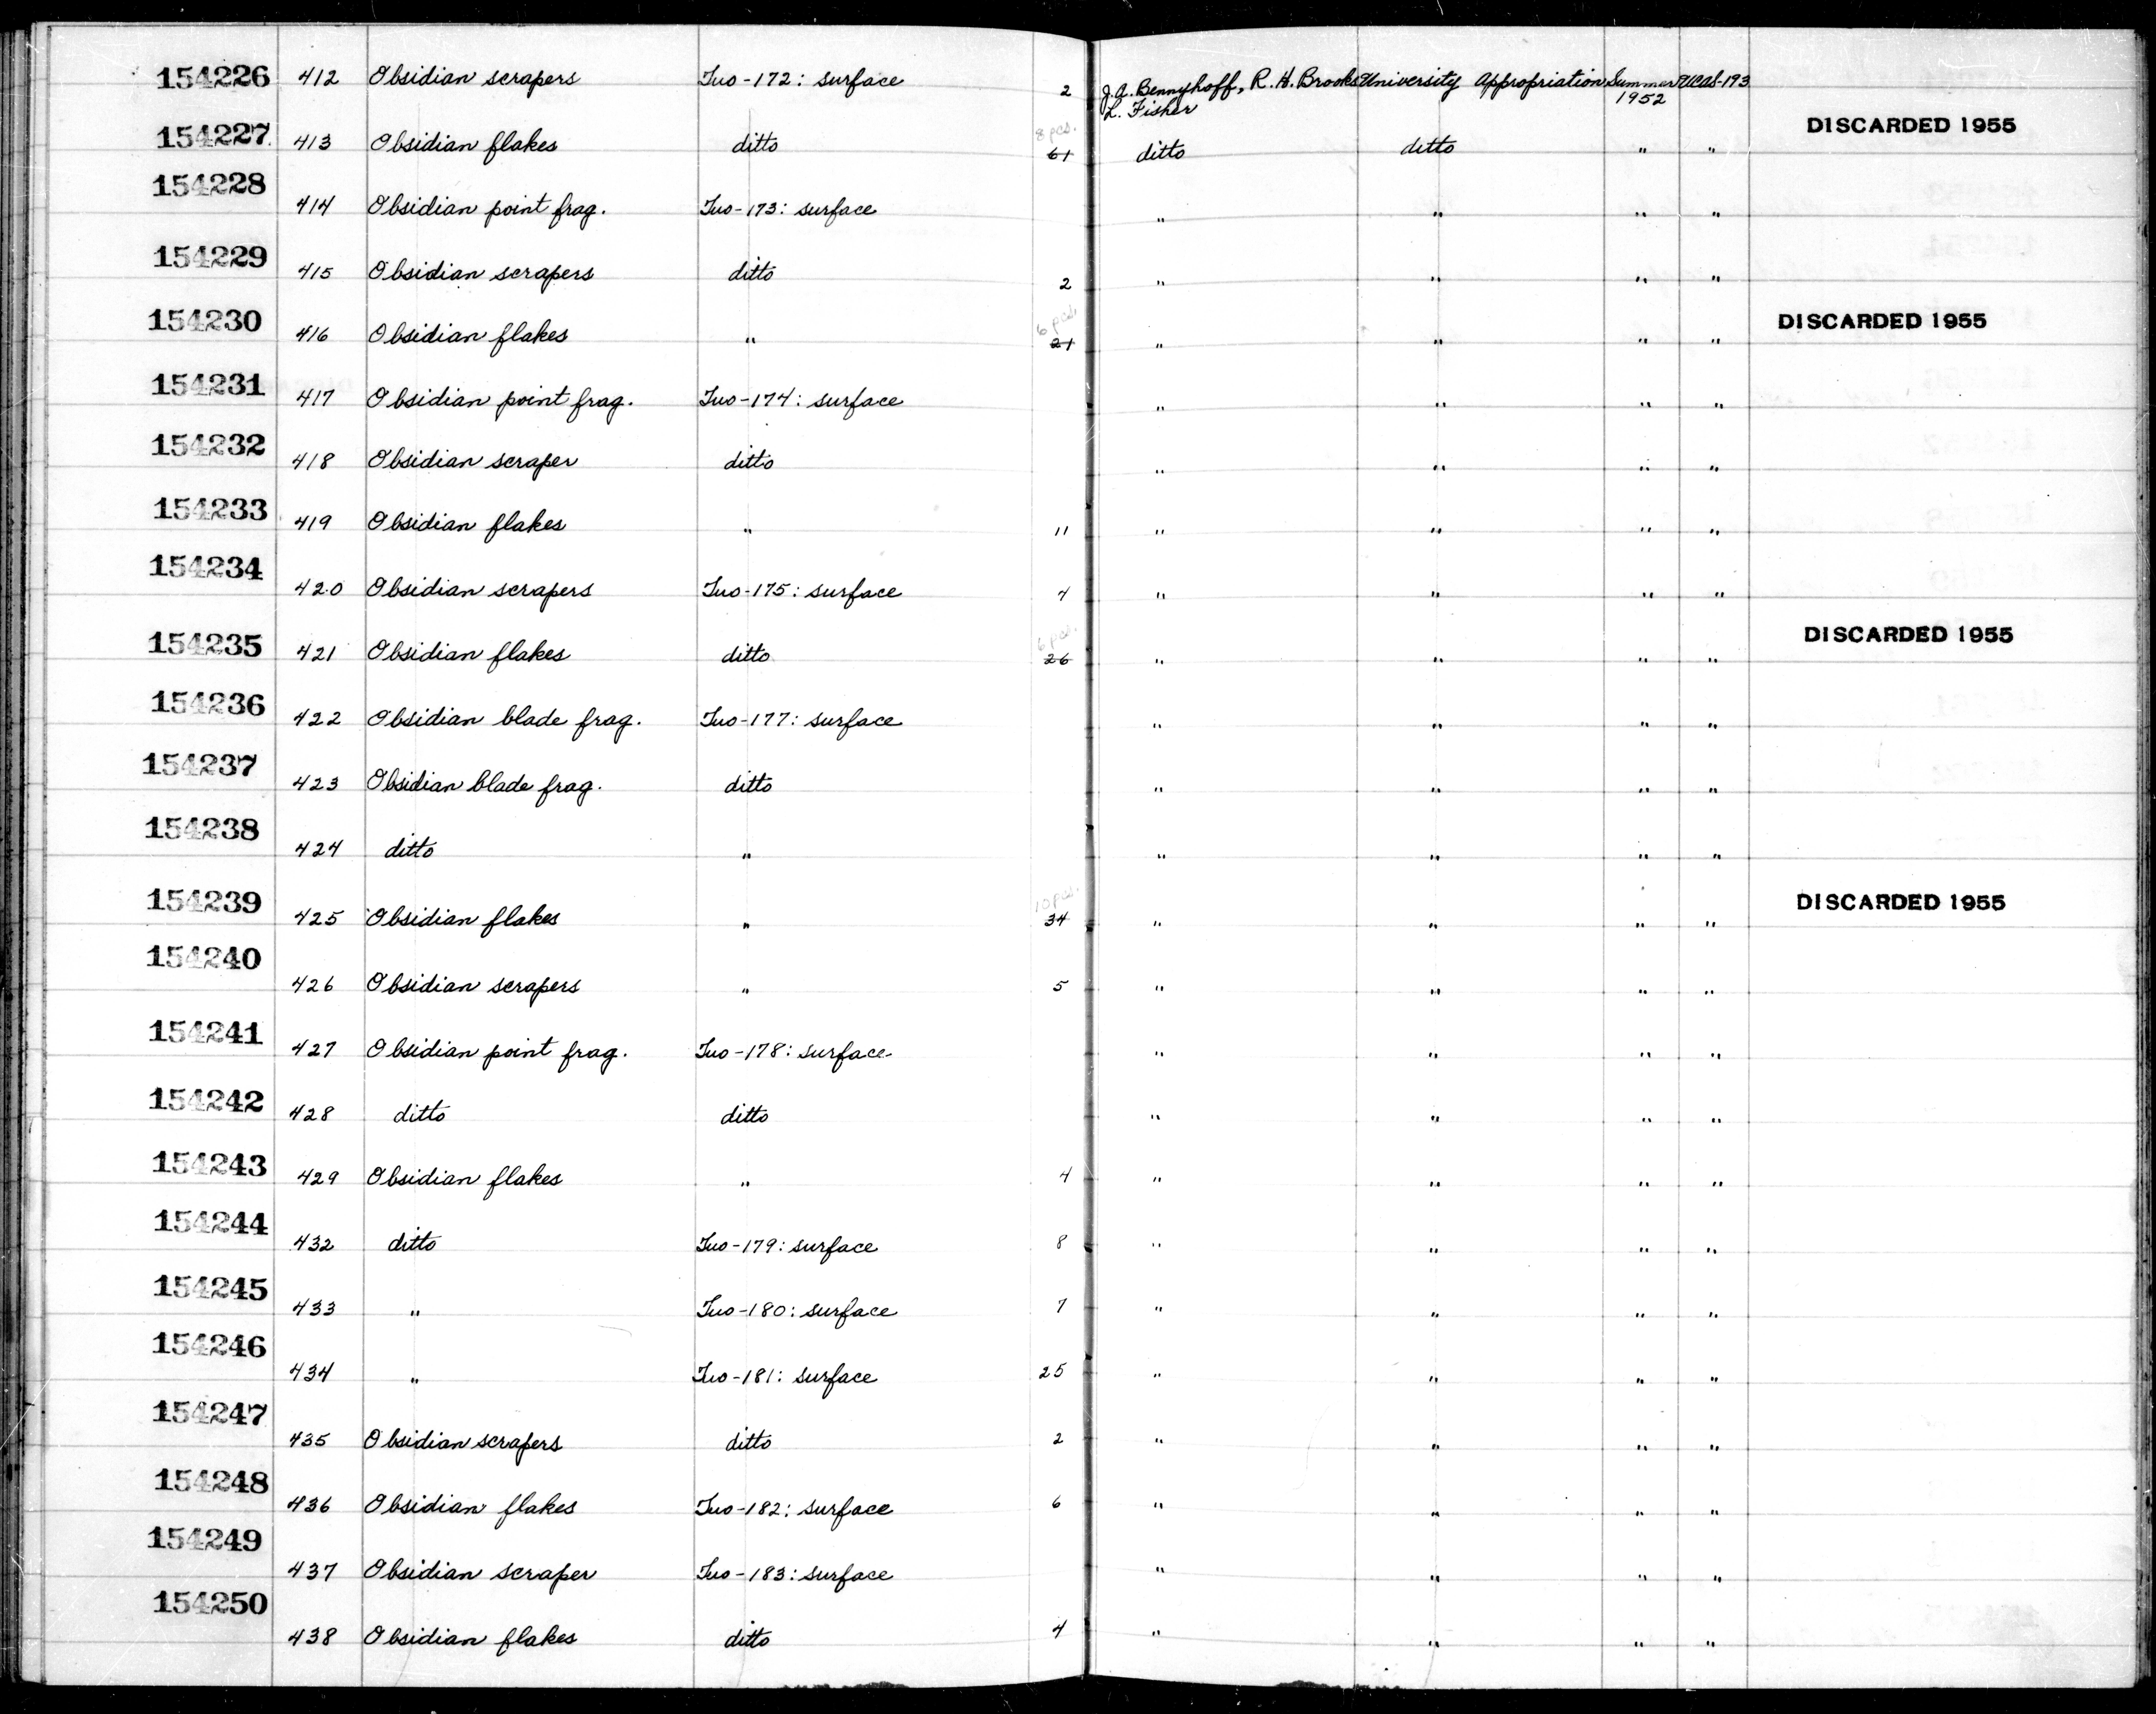 154226 412 Obsidian scrapers Tuo-172: surface 2 J.A. Bennyhoff, R.H. Brooks University Appropriation Summer UCAS-193
L. Fisher 1952
154227 413 Obsidian flakes ditto 8 pcs. 61 ditto ditto " " DISCARDED 1955
154228 414 Obsidian point frag. Tuo-173: surface " " " "
154229 415 Obsidian scrapers ditto 2 " " " "
154230 416 Obsidian flakes " 6 pcs. 21 " " " " DISCARDED 1955
154231 417 Obsidian point frag. Tuo-174: surface " " " "
154232 418 Obsidian scraper ditto " " " "
154233 419 Obsidian flakes " 11 " " " "
154234 420 Obsidian scrapers Tuo-175: surface 4 " " " "
154235 421 Obsidian flakes ditto 6 pcs. 26 " " " " DISCARDED 1955
154236 422 Obsidian blade frag. Tuo-177: surface " " " "
154237 423 Obsidian blade frag. ditto " " " "
154238 424 ditto " " " " "
154239 425 Obsidian flakes " 10 pcs. 34 " " " " DISCARDED 1955
154240 426 Obsidian scrapers " 5 " " " "
154241 427 Obsidian point frag. Tuo-178: surface " " " "
154242 428 ditto ditto " " " "
154243 429 Obsidian flakes " 4 " " " "
154244 432 ditto Tuo-179: surface 8 " " " "
154245 433 " Tuo-180: surface 7 " " " "
154246 434 " Tuo-181: surface 25 " " " "
154247 435 Obsidian scrapers ditto 2 " " " "
154248 436 Obsidian flakes Tuo-182: surface 6 " " " "
154249 437 Obsidian scraper Tuo-183: surface " " " "
154250 438 Obsidian flakes ditto 4 " " " "